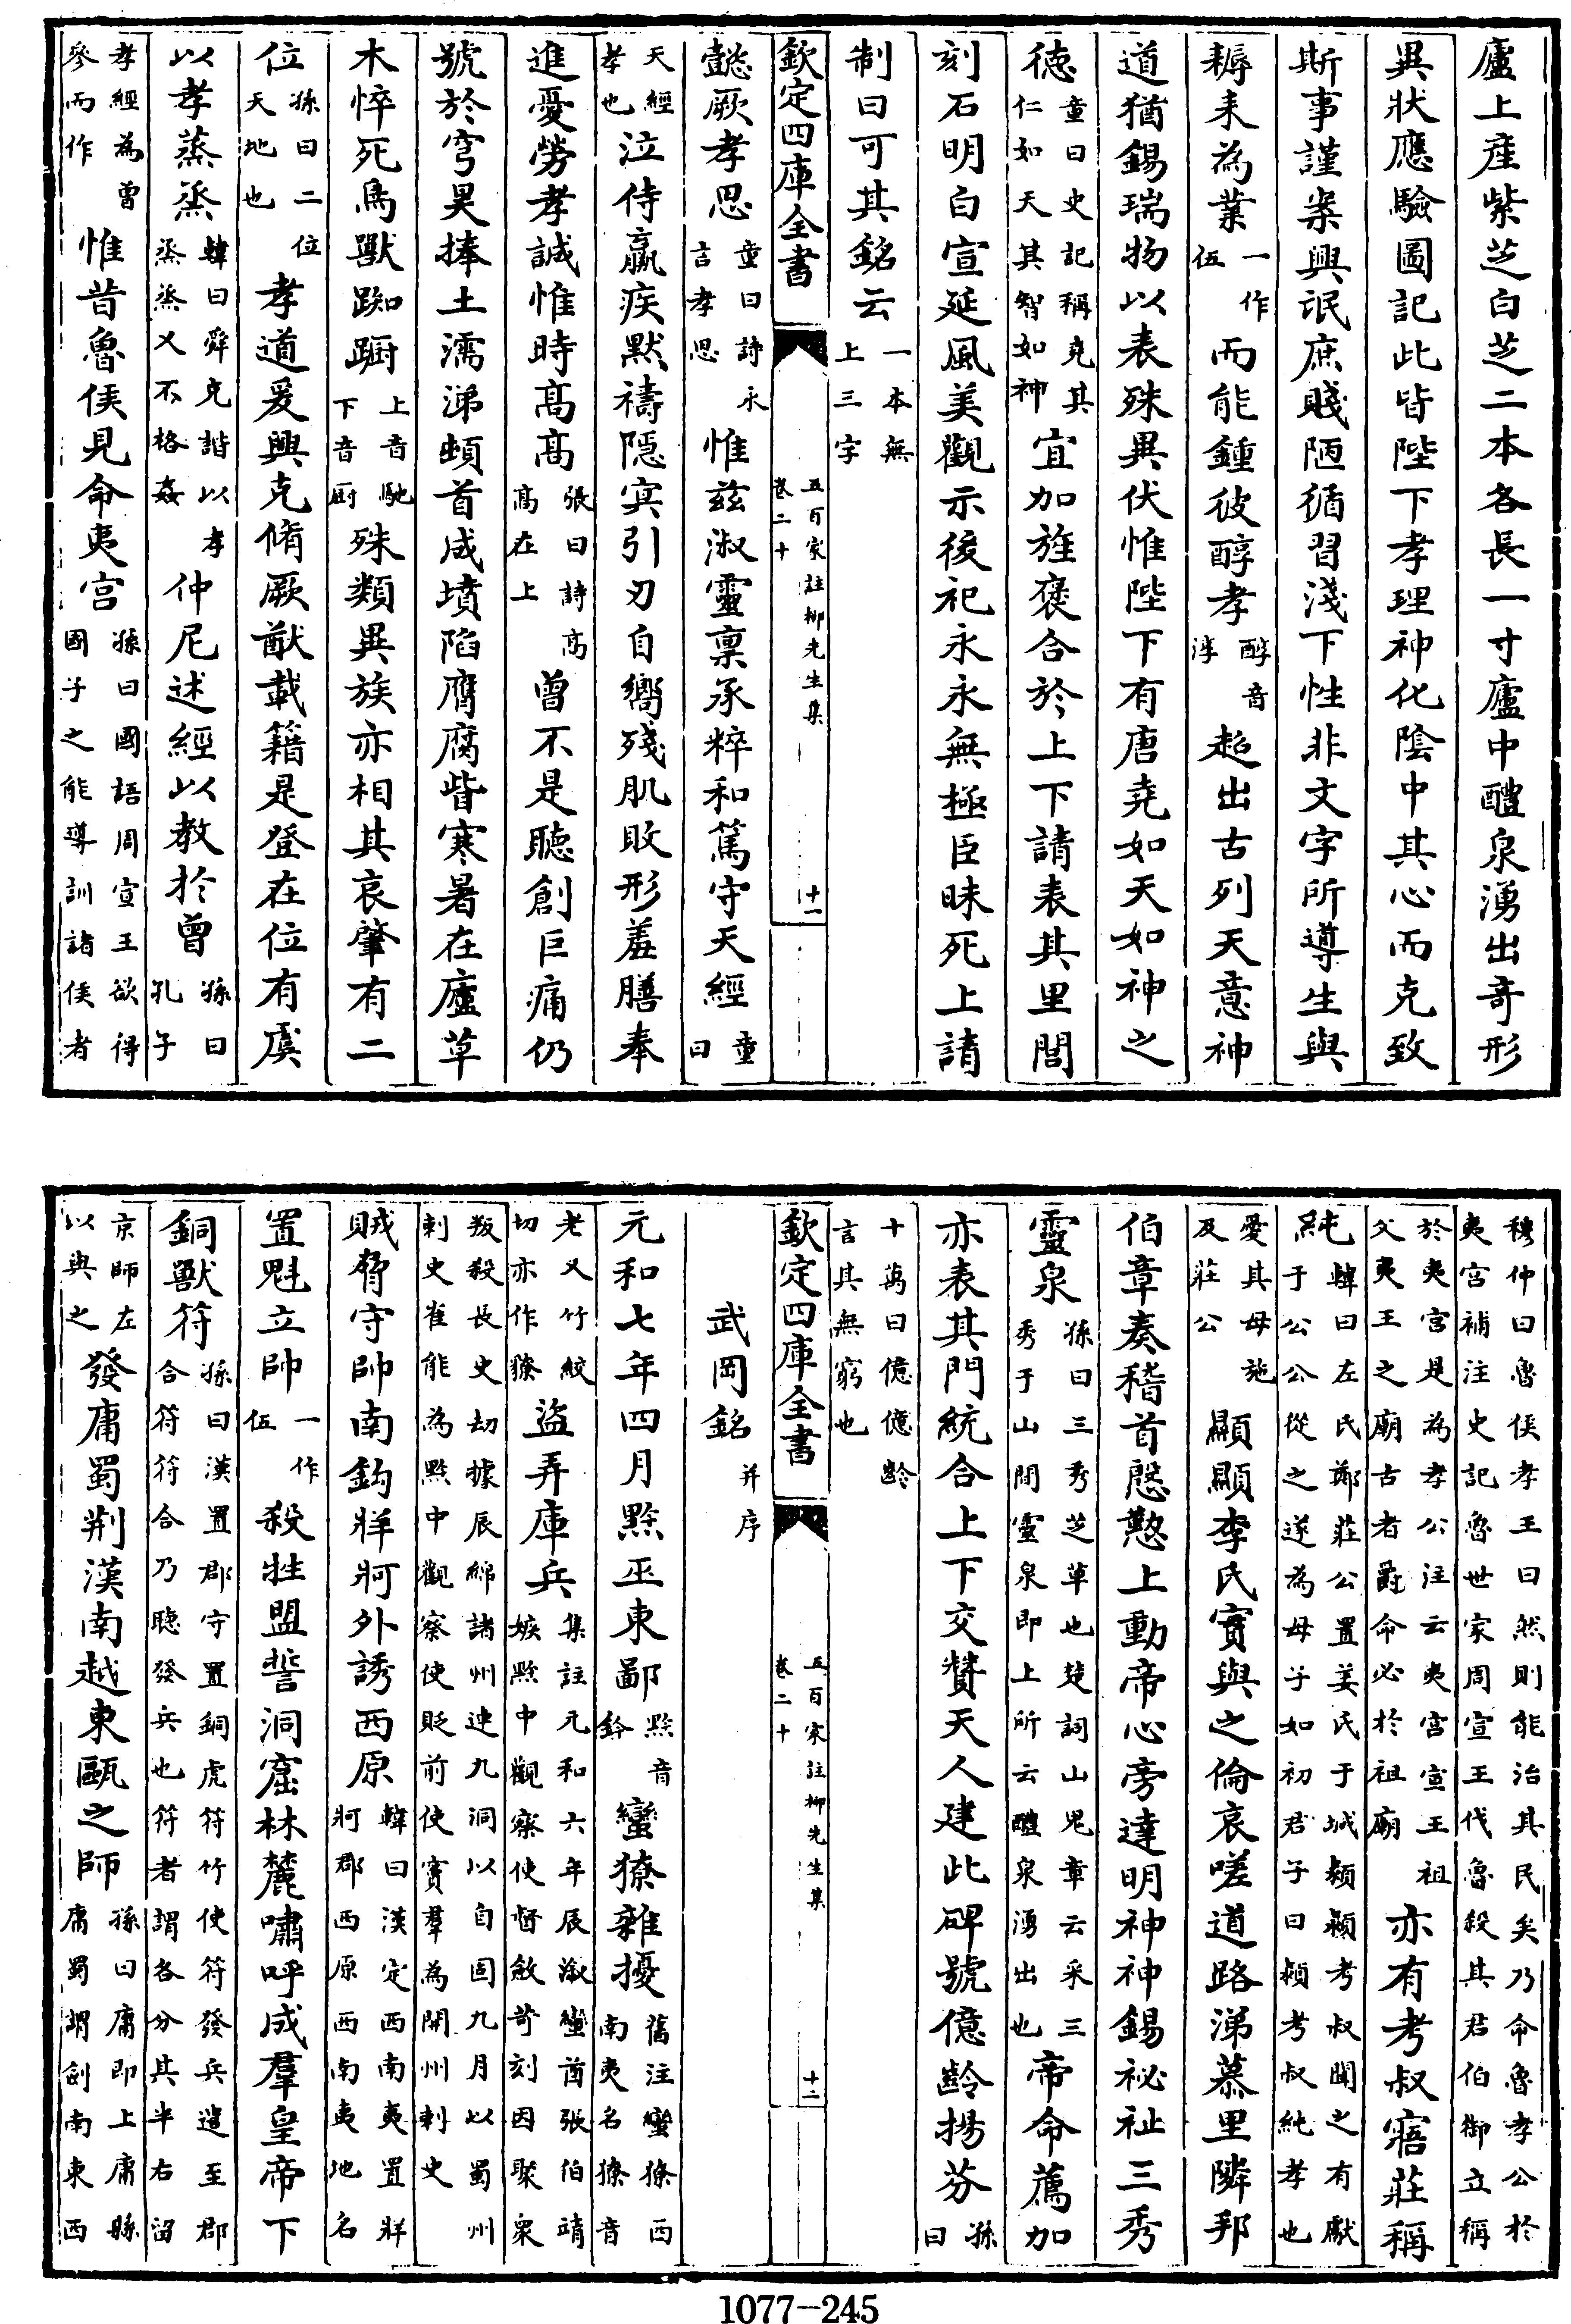 廬上産紫芝白芝二本各長一寸廬中醴泉湧出奇形
異狀應驗圖記此皆陛下孝理神化陰中其心而克致
斯事謹案興氓庶賤陋循習淺下性非文字所導生與
耨耒為業一作伍而能鍾彼醇孝醇音淳超出古列天意神
道猶錫瑞物以表殊異伏惟陛下有唐堯如天如神之
徳童曰史記稱堯其仁如天其智如神宜加旌褒合於上下請表其里閭
刻石明白宣延風美觀示後祀永永無極臣昧死上請
制曰可其銘云一本無上三字
欽定四庫全書 五百家註柳先生集卷二十 十一
懿厥孝思童曰詩永言孝思惟兹淑靈禀承粹和篤守天經童曰
天經孝也泣侍羸疾默禱隠冥引刃自嚮殘肌敗形羞膳奉
進憂勞孝誠惟時髙髙張曰詩髙髙在上曾不是聽創巨痛仍
號於穹昊捧土濡涕頓首成墳陷膺腐眥寒暑在廬草
木悴死鳥獸踟蹰上音馳下音厨殊類異族亦相其哀肇有二
位孫曰二位天地也孝道爰興克脩厥猷載籍是登在位有虞
以孝蒸蒸韓曰舜克諧以孝蒸蒸乂不格姦仲尼述經以教於曾孫曰孔子
孝經為曾參而作惟昔魯侯見命夷宫孫曰國語周宣王欲得國子之能導訓諸侯者
穆仲曰魯侯孝王曰然則能治其民矣乃命魯孝公於夷宫補注史記魯世家周宣王伐魯殺其君伯御立稱
於夷宫是為孝公注云夷宫宣王祖父夷王之廟古者爵命必於祖廟亦有考叔寤莊稱
純韓曰左氏鄭莊公置姜氏于城潁潁考叔聞之有獻于公公從之遂為母子如初君子曰潁考叔純孝也
愛其母施及莊公顯顯李氏實與之倫哀嗟道路涕慕里隣邦
伯章奏稽首慇懃上動帝心旁達明神神錫祕祉三秀
靈泉孫曰三秀芝草也楚詞山鬼章云采三秀于山間靈泉即上所云醴泉湧出也帝命薦加
亦表其門統合上下交贊天人建此碑號億齡揚芬孫曰
十萬曰億億齡言其無窮也
欽定四庫全書 五百家註柳先生集卷二十 十二
武岡銘并序
元和七年四月黔巫東鄙黔音鈐蠻獠雜擾舊注蠻獠西南夷名獠音
老又竹絞切亦作獠盜弄庫兵集註元和六年辰溆蠻酋張伯靖嫉黔中觀察使督斂苛刻因聚衆
叛殺長史劫據辰綿諸州連九洞以自固九月以蜀州刺史崔能為黔中觀察使貶前使竇羣為開州刺史
賊脅守帥南鈎牂牁外誘西原韓曰漢定西南夷置牂牁郡西原西南夷地名
置魁立帥一作伍殺牲盟誓洞窟林麓嘯呼成羣皇帝下
銅獸符孫曰漢置郡守置銅虎符竹使符發兵遣至郡合符符合乃聴發兵也符者謂各分其半右留
京師左以與之發庸蜀荆漢南越東甌之師孫曰庸即上庸縣庸蜀謂劍南東西
1077—245